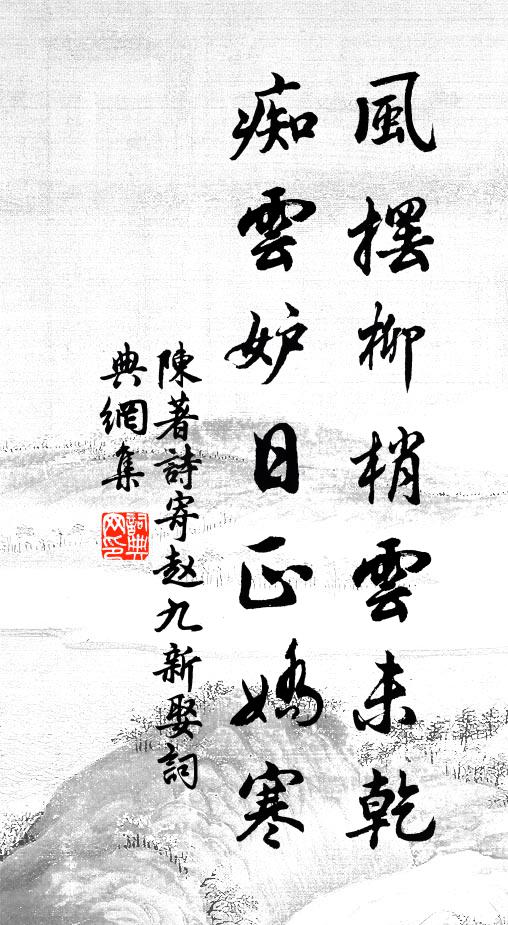 風擺柳梢雲未乾
痴雲妒日正嬌寒
陳著詩寄赵九新娶詞
典網集
詞典网印